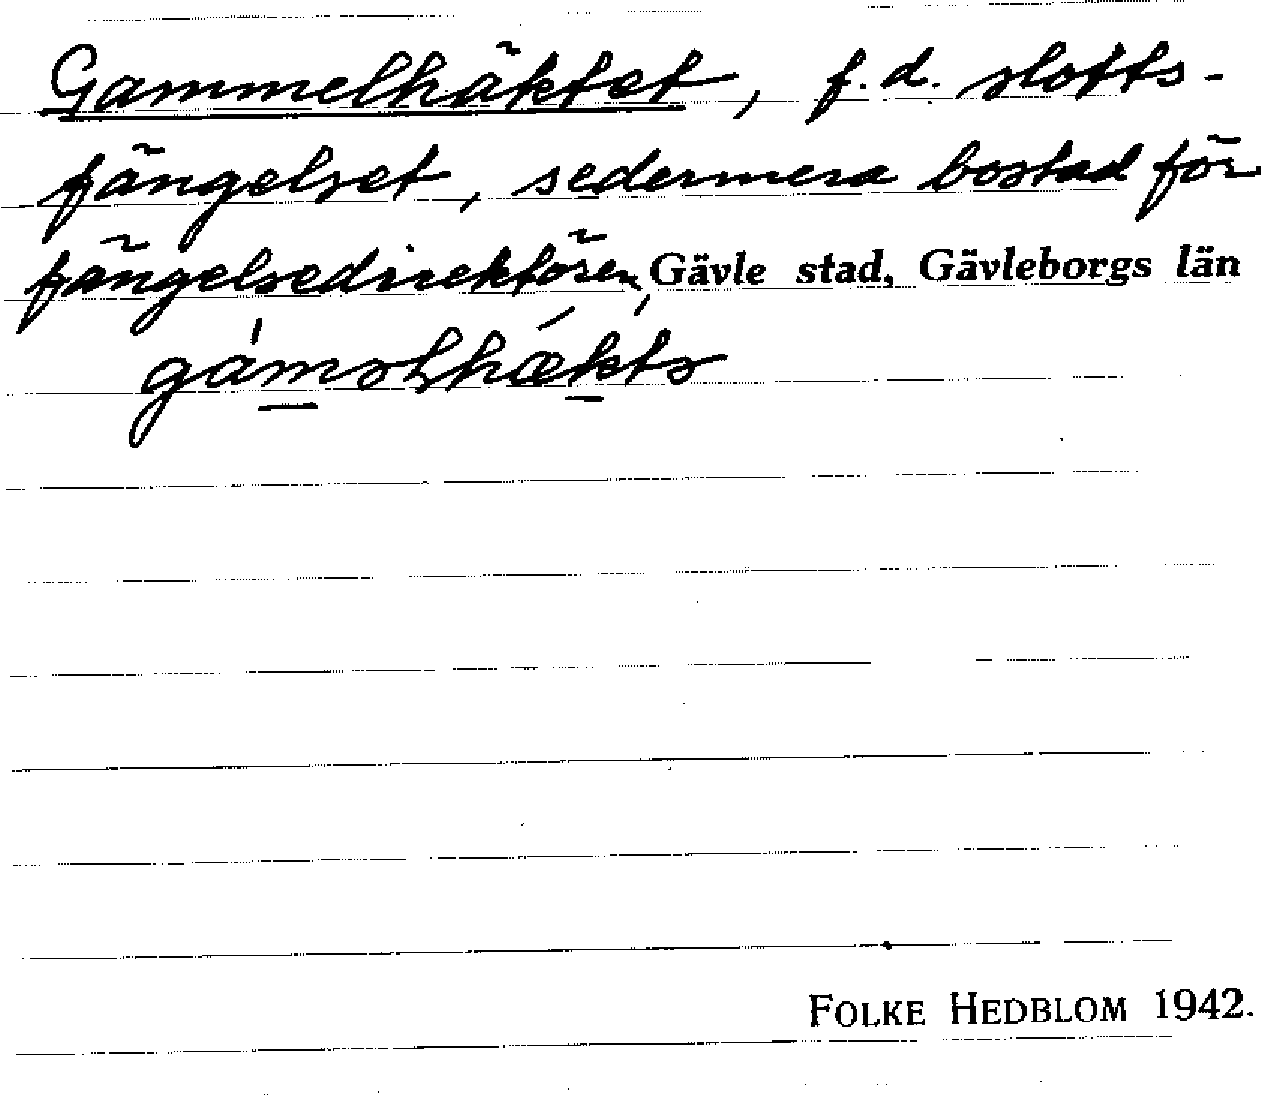 Gammelhäktet, f.d. slotts-
fängelset, sedermera bostad för
fängelsedirektören, Gävle stad, Gävleborgs län
FOLKE HEDBLOM 1942.